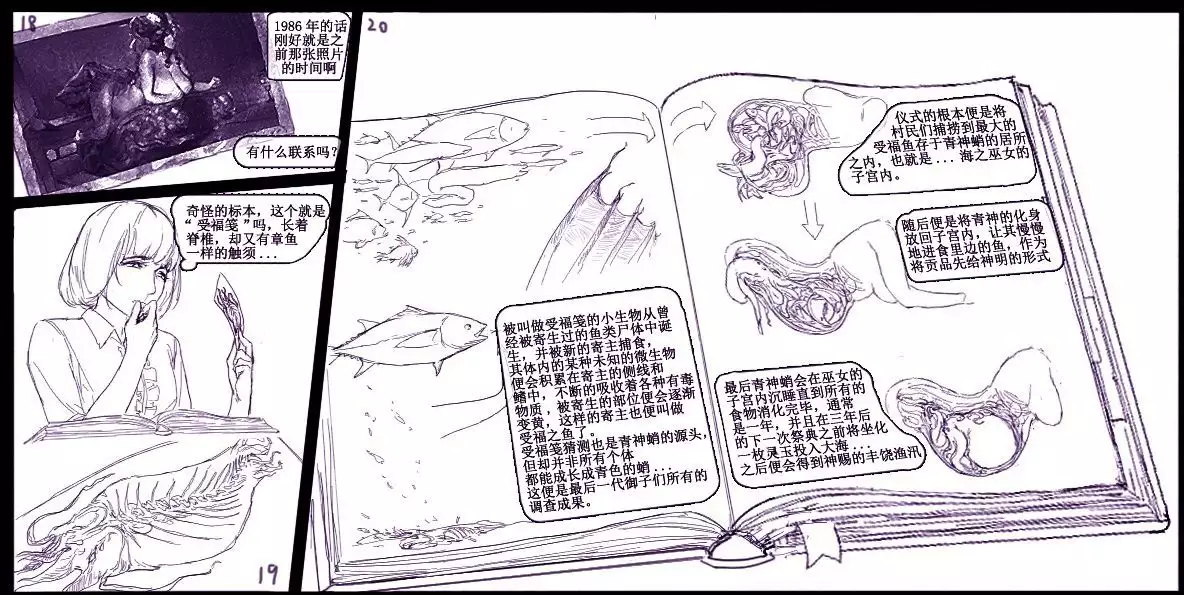 18
1986年的话
刚好就是之
前那张照片
的时间啊
有什么联系吗?
奇怪的标本，这个就是
“受福笺”吗，长着
脊椎，却又有章鱼
一样的触须...
19
20
被叫做受福笺的小生物从曾
经被寄生过的鱼类尸体中诞
生，并被新的寄主捕食，
其体内的某种未知的微生物
便会积累在寄主的侧线和
鳍中，不断的吸收着各种有毒
物质，被寄生的部位便会逐渐
变黄，这样的寄主也便叫做
受福之鱼了。
受福笺猜测也是青神蛸的源头，
但却并非所有个体
都能成长成青色的蛸...
这便是最后一代御子们所有的
调查成果。
仪式的根本便是将
村民们捕捞到最大的
受福鱼存于青神蛸的居所
之内，也就是...海之巫女的
子宫内。
随后便是将青神的化身
放回子宫内，让其慢慢
地进食里边的鱼，作为
将贡品先给神明的形式
最后青神蛸会在巫女的
子宫内沉睡直到所有的
食物消化完毕，通常
是一年，并且在三年后
的下一次祭典之前将坐化
一枚灵玉投入大海...
之后便会得到神赐的丰饶渔汛